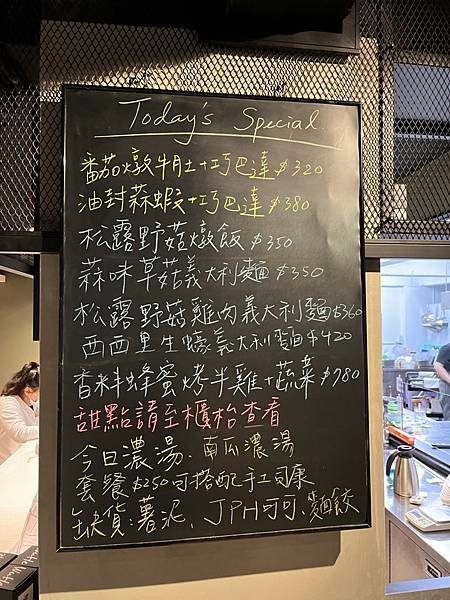 Today's Special
番茄燉牛肚+巧巴達$320
油封蒜蝦+巧巴達$380
松露野菇燉飯$350
蒜味草菇義大利麵$350
松露野菇雞肉義大利麵$360
西西里生蠔義大利麵$420
香料蜂蜜烤半雞+蔬菜$780
甜點請至櫃枱查看
今日濃湯、南瓜濃湯
套餐$250可搭配手工司康
缺貨:薯泥、JPH可可、麵餃